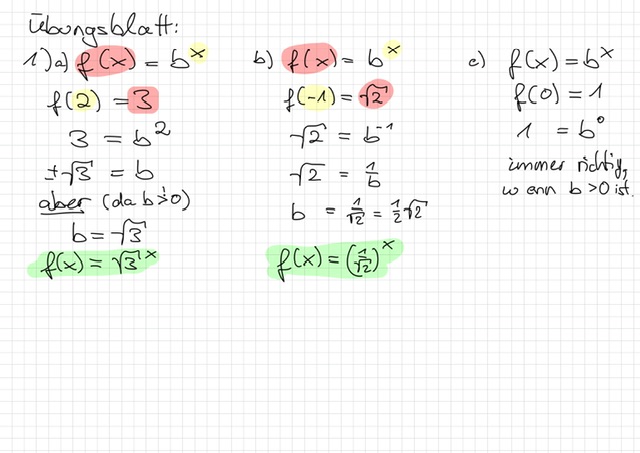 Übungsblatt:
1) a) f(x) = b^x
f(2) = 3
3 = b^2
±√3 = b
aber (da b>0)
b = √3
f(x) = √3^x
b) f(x) = b^x
f(-1) = √2
√2 = b^-1
√2 = 1/b
b = 1/√2 = 1/2 √2
f(x) = (1/√2)^x
c) f(x) = b^x
f(0) = 1
1 = b^0
immer richtig,
wenn b>0 ist.